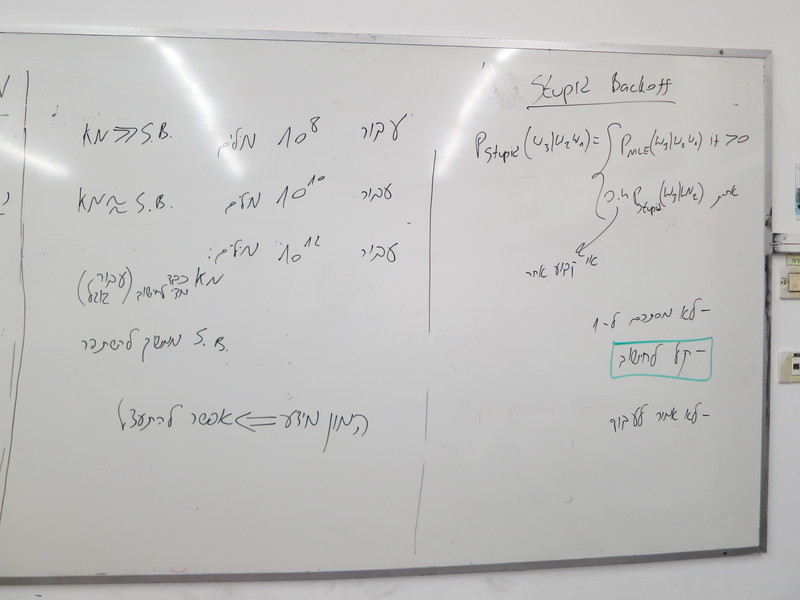 Stupid Backoff
P_Stupid(w_3|w_2 w_1) = { P_MLE(w_3|w_2 w_1) if > 0
0.4 P_Stupid(w_3|w_2) אחרת
או קבוע אחר
- לא מסתכם ל-1
- קל לחישוב
- לא אמור לעבוד
עבור 10^8 מלים KN >> S.B.
עבור 10^10 מלים KN ≈ S.B.
עבור 10^12 מילים:
KN כבד מדי לחישוב (עבור גוגל)
S.B. ממשיך להשתפר
המון מידע ⇐ אפשר להתעצל